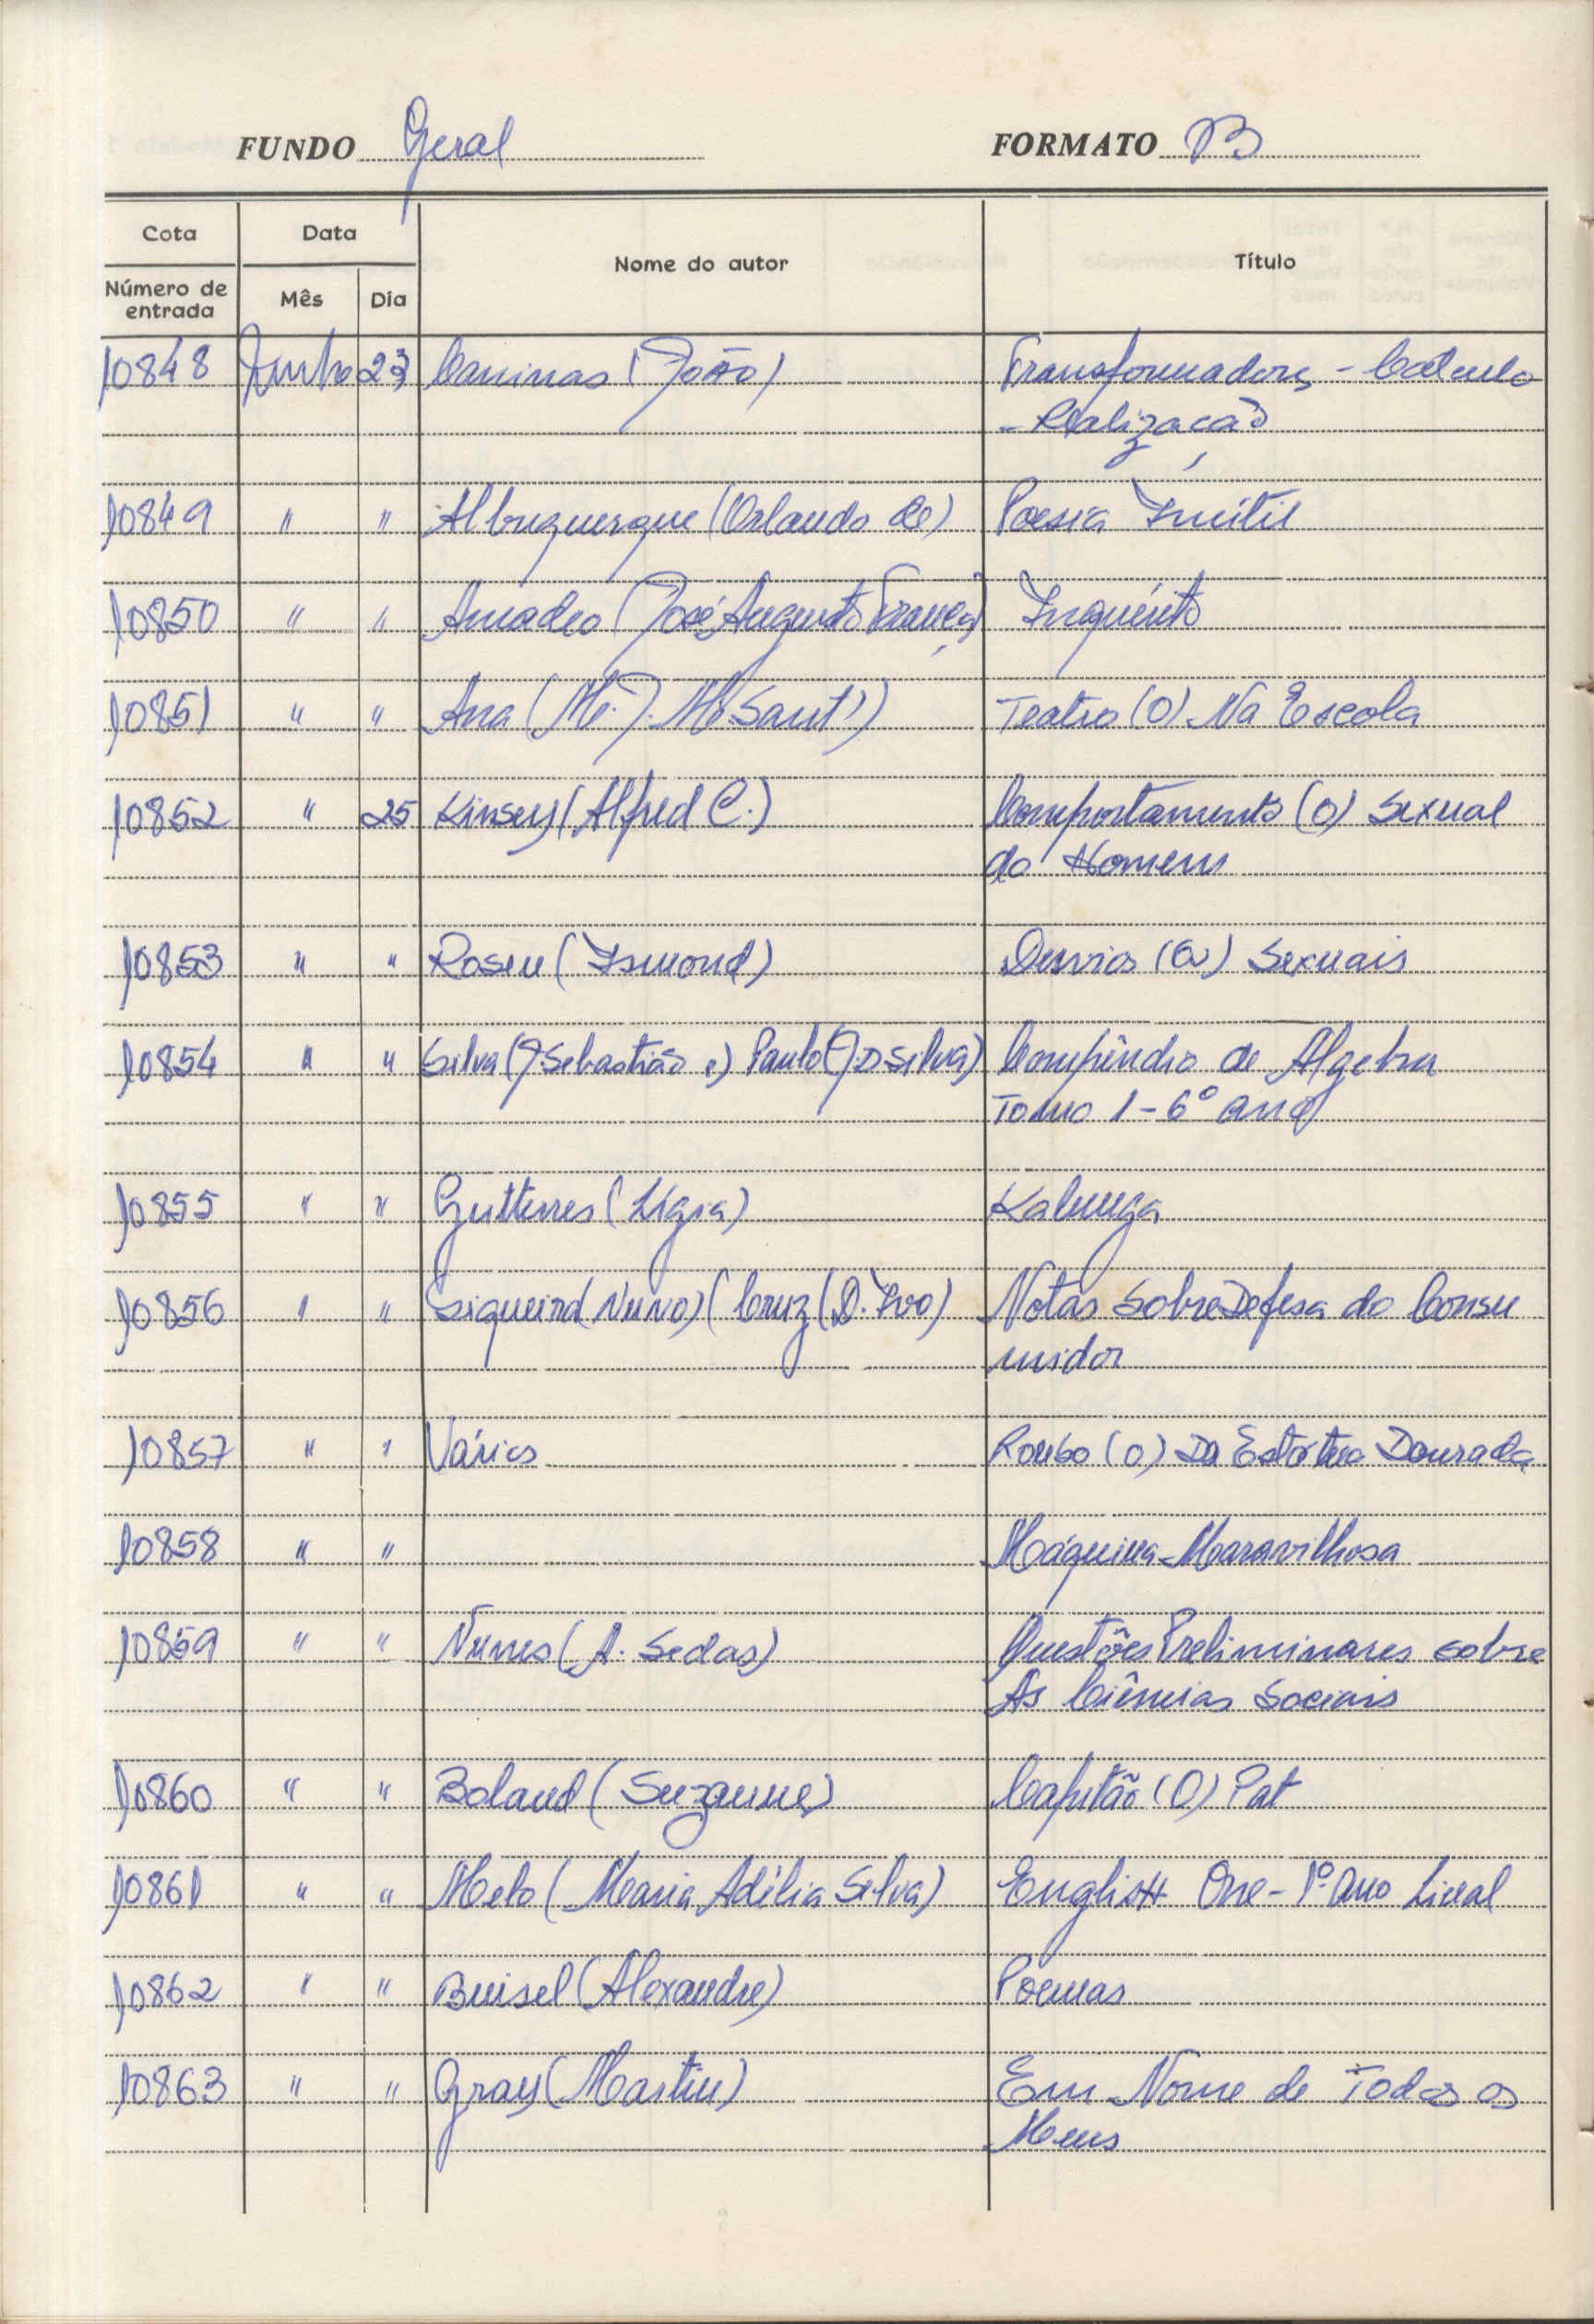 FUNDO Geral FORMATO B
Cota Data Nome do autor Título
Número de entrada Mês Dia
10848 Junho 23 Caninas (João) Transformadores - Cálculo
- Realização
10849 " " Albuquerque (Orlando de) Poesia Inútil
10850 " " Amadeo (José Augusto França) Inquérito
10851 " " Ana (Mª. J. Mº Sant') Teatro (O) Na Escola
10852 " 25 Kinsey (Alfred C.) Comportamento (O) Sexual
do Homem
10853 " " Rosen (Ismond) Desvios (Os) Sexuais
10854 " " Silva (J. Sebastião e) Paulo (J. D Silva) Compêndio de Algebra
Tomo 1 - 6º ano
10855 " " Gutterres (Lígia) Kalunga
10856 " " Siqueira (Nuno) (Cruz (D. Ivo) Notas Sobre Defesa do Consu
midor
10857 " " Vários Roubo (O) Da Estátua Dourada
10858 " " Máquina Maravilhosa
10859 " " Nunes (A. Sedas) Questões Preliminares sobre
As Ciências Sociais
10860 " " Boland (Suzanne) Capitão (O) Pat
10861 " " Melo (Maria Adélia Silva) English One - 1º Ano Liceal
10862 " " Buisel (Alexandre) Poemas
10863 " " Gray (Martin) Em Nome de Todos os
Meus